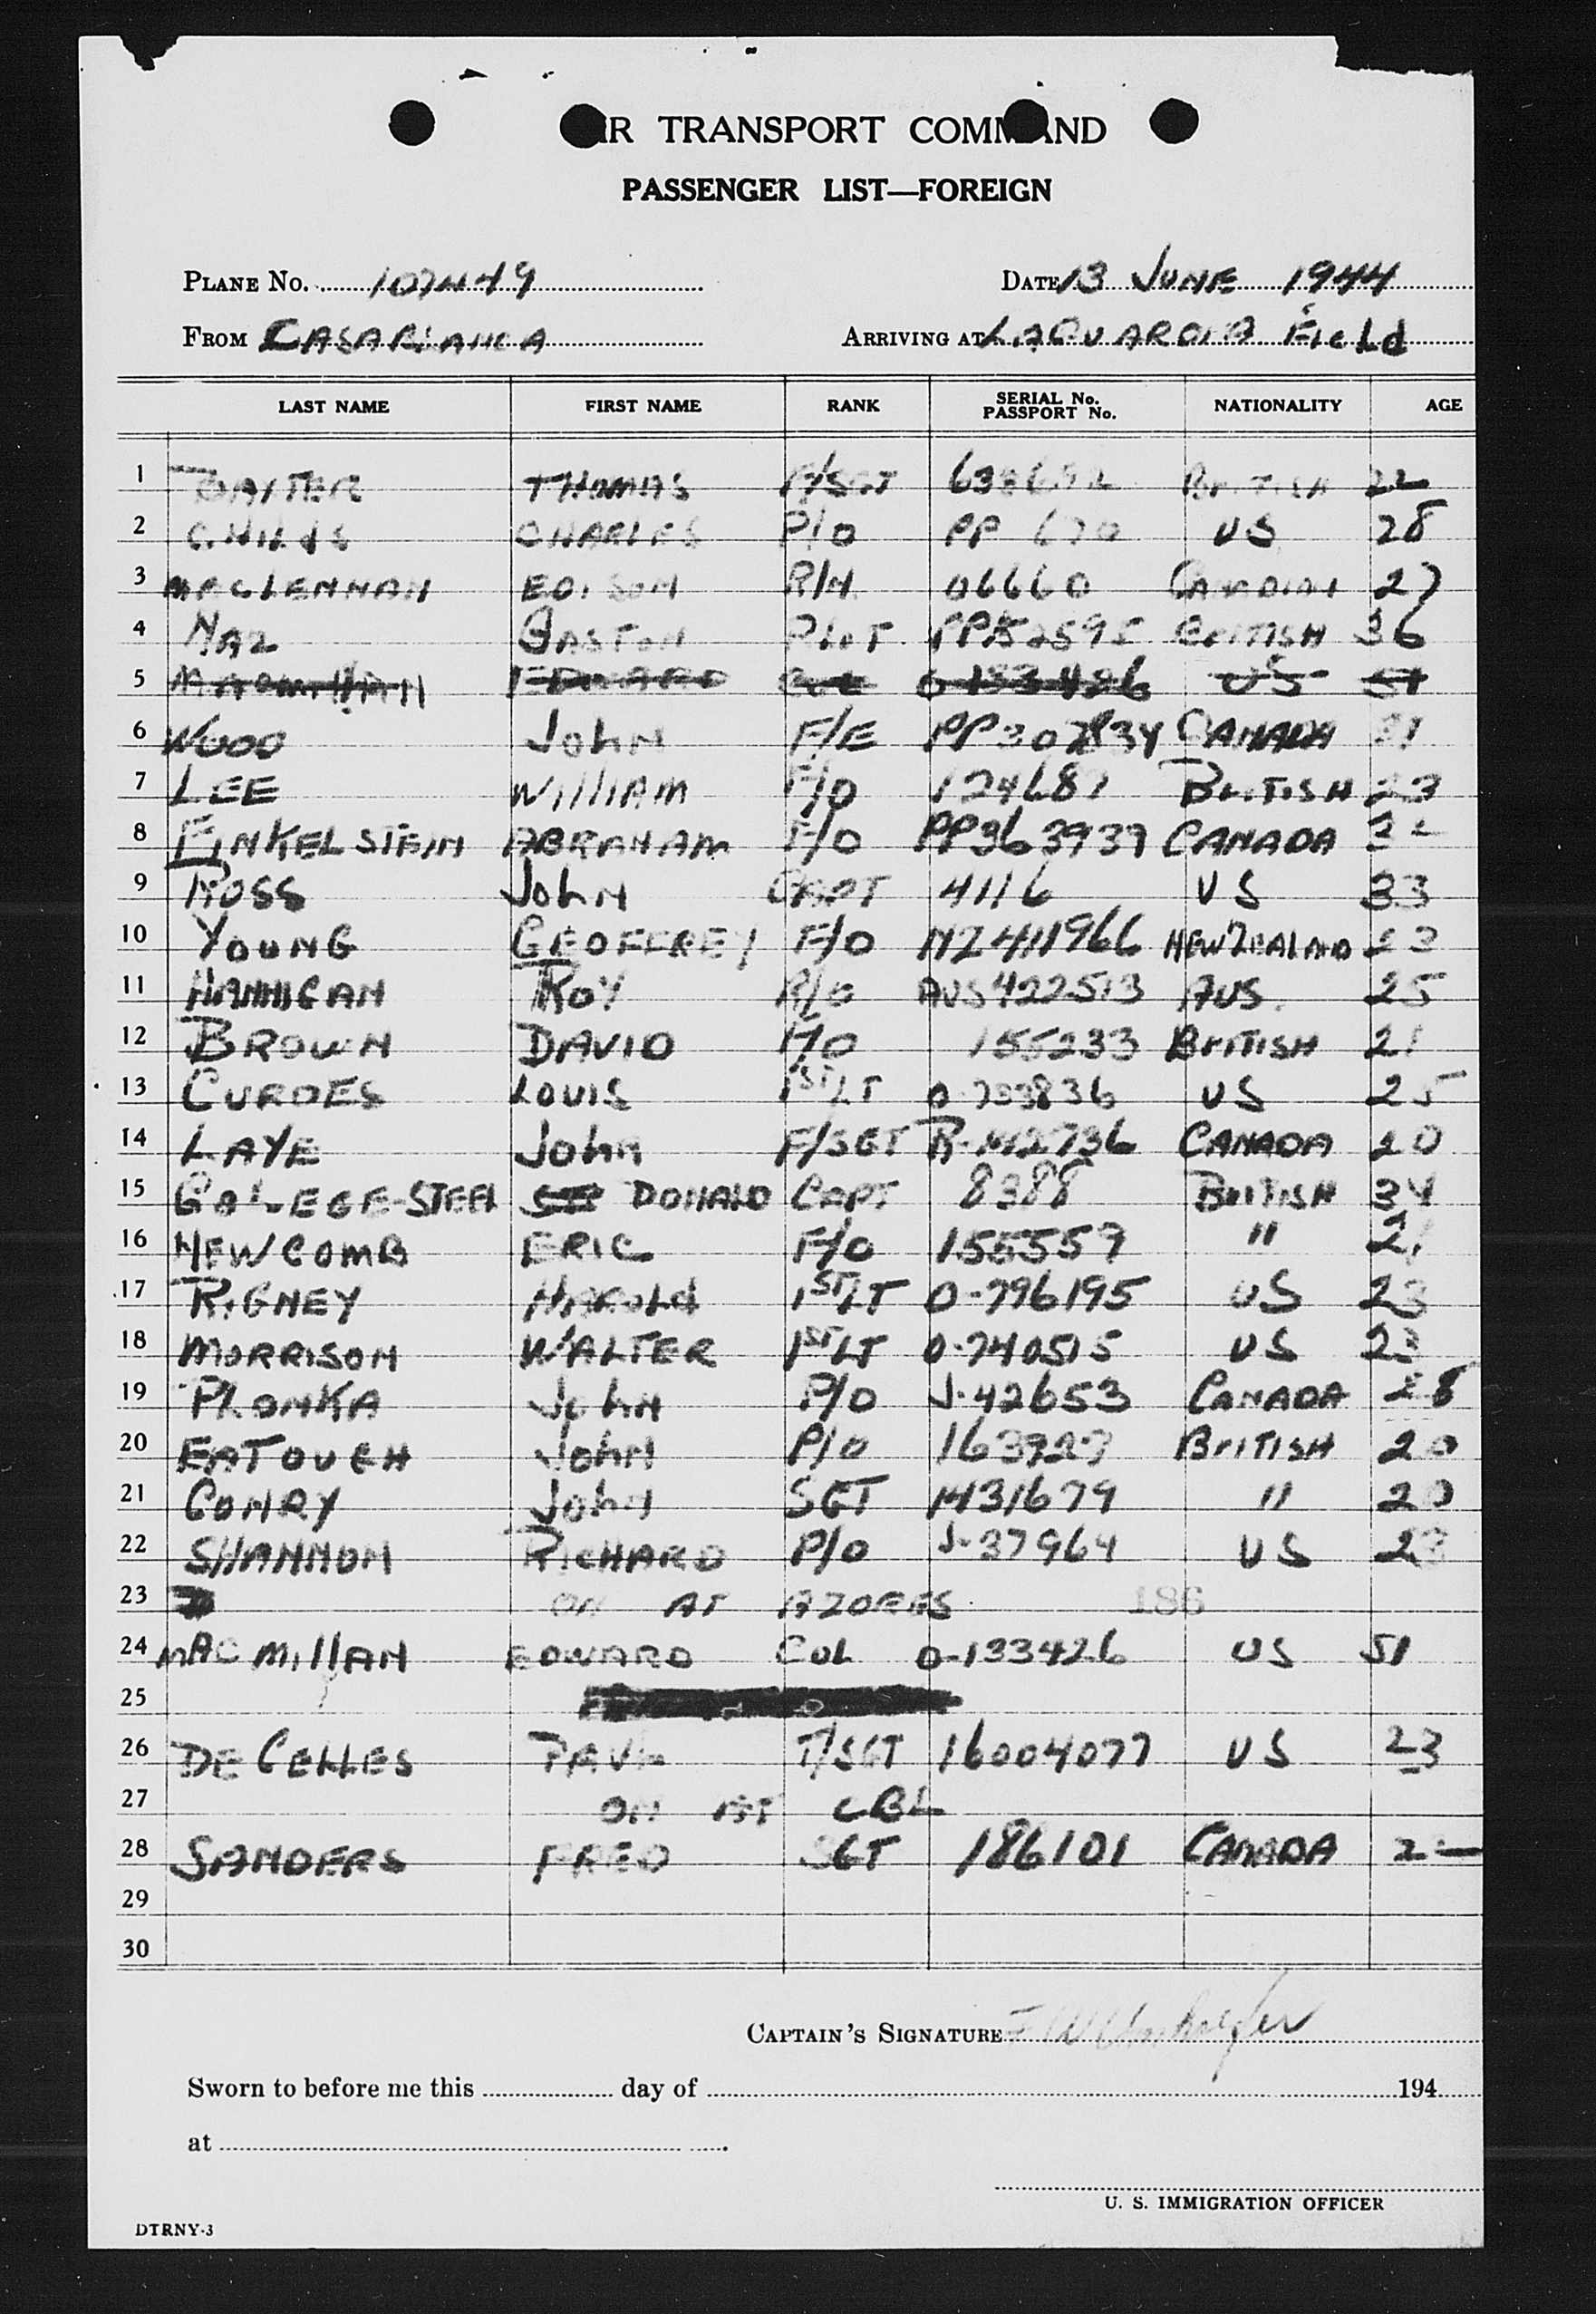 AIR TRANSPORT COMMAND
PASSENGER LIST—FOREIGN
PLANE No. 107449 DATE 13 JUNE 1944
FROM CASABLANCA ARRIVING AT LAGUARDIA FIELd
LAST NAME FIRST NAME RANK SERIAL No. PASSPORT No. NATIONALITY AGE
1 BAXTER THOMAS F/SGT BRITISH 22
2 CHILDS CHARLES P/O PP 670 US 28
3 MACLENNAN EDISON R/N 06660 CANADIAN 27
4 GASTON BRITISH 36
5 MACMILLAN EDWARD COL O-133426 US 51
6 WOOD JOHN F/E CANADA 31
7 LEE WILLIAM F/O 124687 BRITISH 23
8 FINKELSTEIN ABRAHAM F/O PP363939 CANADA
9 ROSS JOHN CAPT 4116 US 33
10 YOUNG GEOFFREY F/O NZ411966 NEW ZEALAND 23
11 HANNIGAN ROY R/O AUS422513 AUS. 25
12 BROWN DAVID F/O 155233 BRITISH 21
13 CURDES LOUIS 1ST LT US 25
14 LAYE JOHN F/SGT CANADA 20
15 DONALD CAPT 8388 BRITISH 34
16 NEWCOMB ERIC F/O 155559 "
17 RIGNEY HAROLD 1ST LT O-796195 US 23
18 MORRISON WALTER 1ST LT O-740515 US 23
19 PLONKA JOHN P/O J-42653 CANADA 28
20 EATOUGH JOHN P/O 163927 BRITISH 20
21 CONRY JOHN SGT 1431679 " 20
22 SHANNON RICHARD P/O J-37964 US 23
23 ON AT AZORES 186
24 MACMILLAN EDWARD COL O-133426 US 51
25
26 DE CELLES PAUL T/SGT 16004077 US 23
27 ON AT CBL
28 SANDERS FRED SGT 186101 CANADA
29
30
CAPTAIN'S SIGNATURE
Sworn to before me this day of 194
at
U. S. IMMIGRATION OFFICER
DTRNY-3